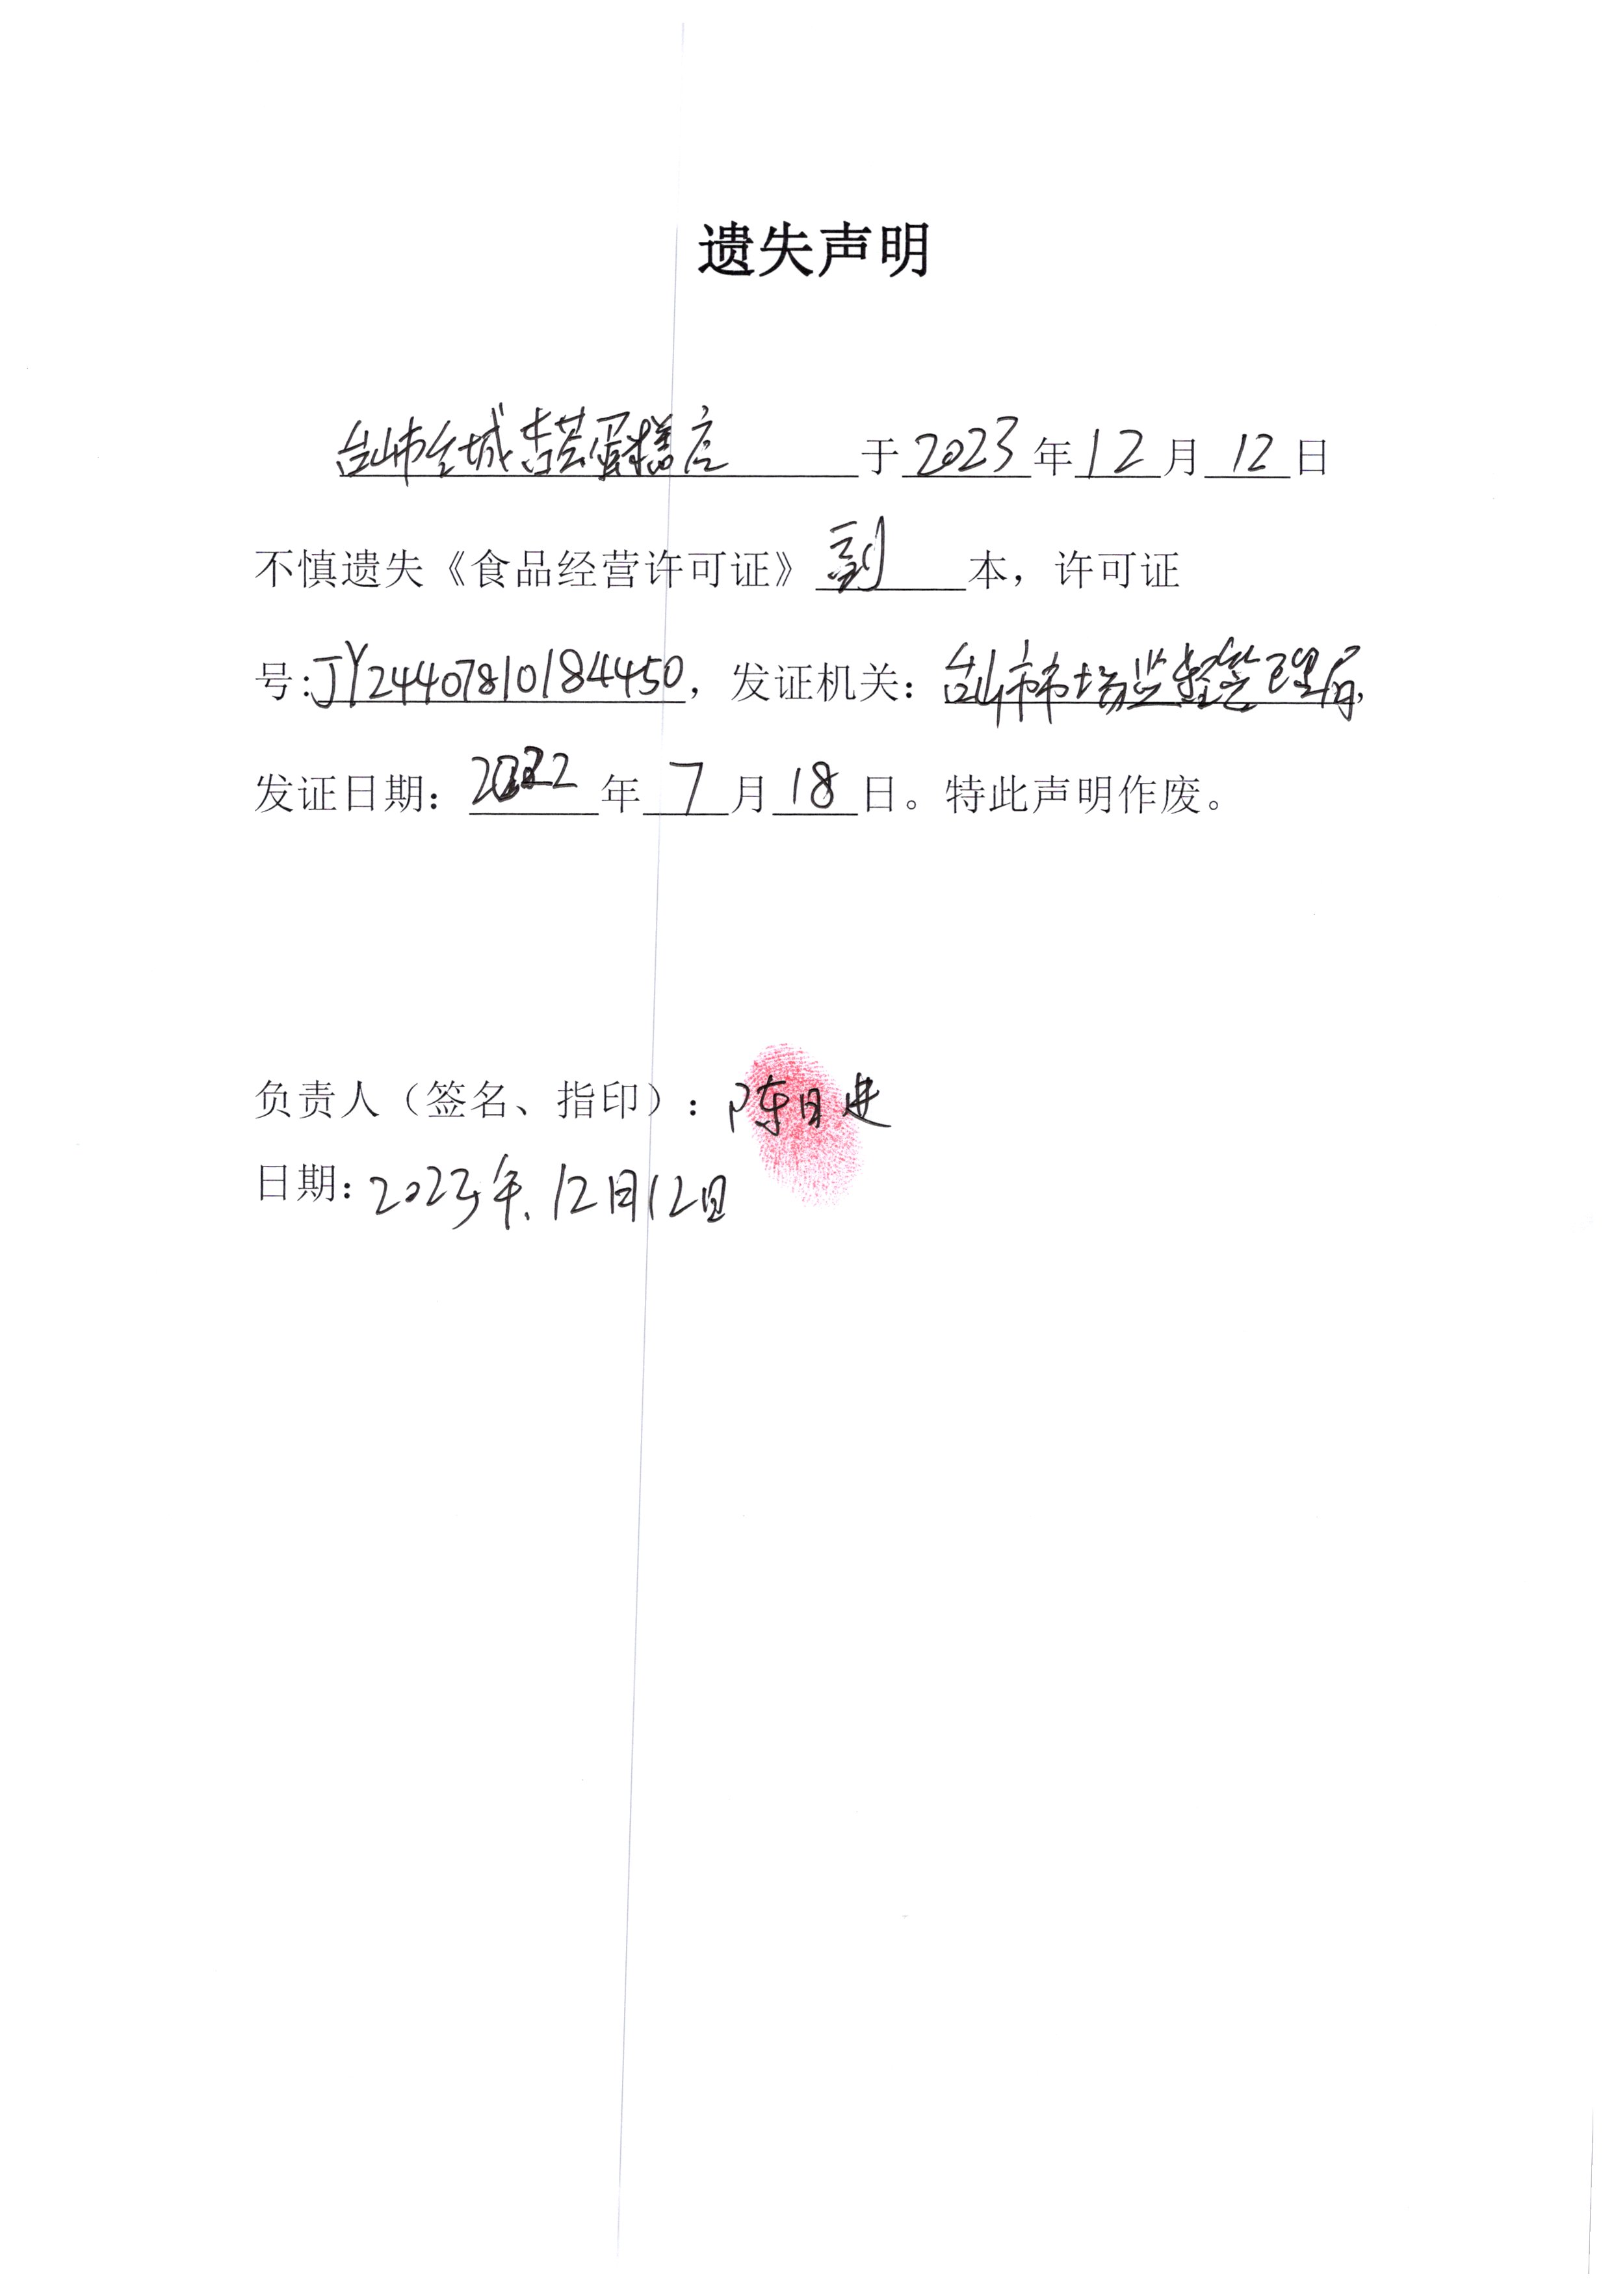 遗失声明
台山市台城杏芸蛋糕店于2023年12月12日
不慎遗失《食品经营许可证》副本，许可证
号:JY24407810184450，发证机关：台山市市场监督管理局，
发证日期：2022年7月18日。特此声明作废。
负责人（签名、指印）：陈日进
日期：2023年.12月12日